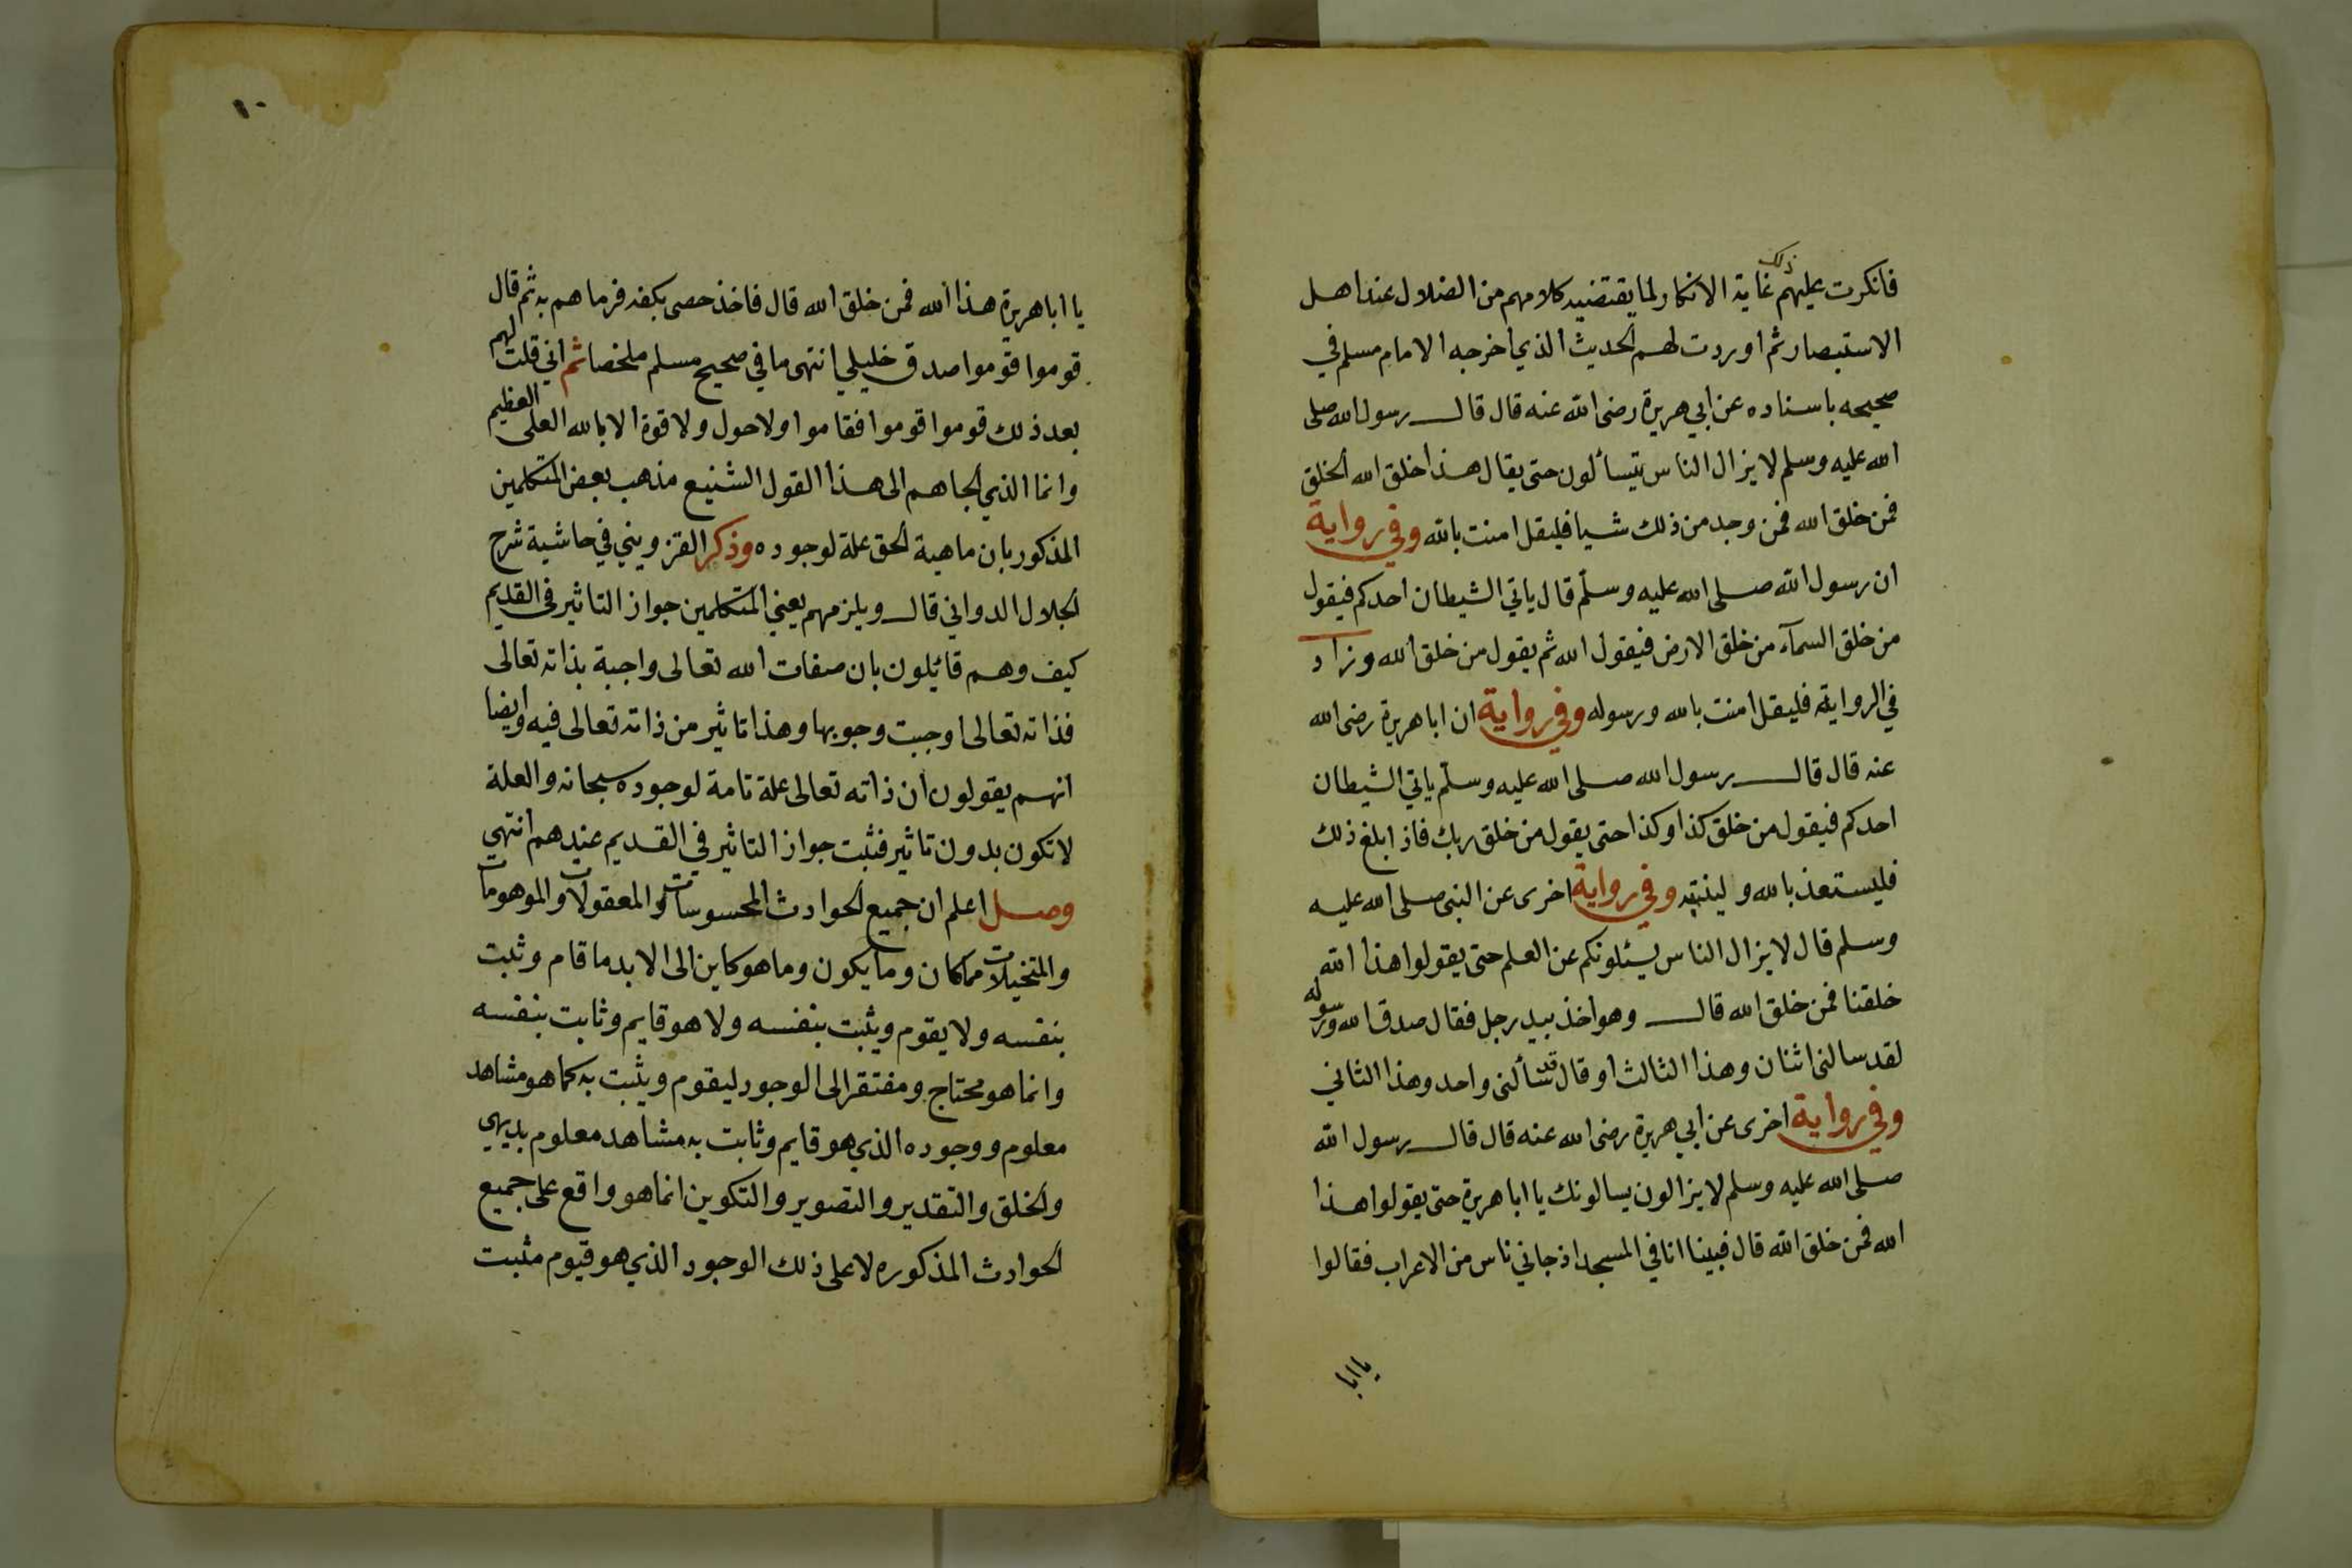 فانكرت عليهم ذلك غاية الانكار لما يقتضيه كلامهم من الضلال عند اهل
الاستبصار ثم اوردت لهم الحديث الذي اخرجه الامام مسلم في
صحيحه باسناده عن ابي هريرة رضى الله عنه قال قال رسول الله صلى
الله عليه وسلم لا يزال الناس يتسألون حتى يقال هذا خلق الله الخلق
فمن خلق الله فمن وجد من ذلك شيا فليقل امنت بالله وفي رواية
ان رسول الله صلى الله عليه وسلم قال ياتي الشيطان احدكم فيقول
من خلق السمآء من خلق الارض فيقول الله ثم يقول من خلق الله وزاد
في الرواية فليقل امنت بالله ورسوله وفي رواية ان ابا هريرة رضى الله
عنه قال قال رسول الله صلى الله عليه وسلم ياتي الشيطان
احدكم فيقول من خلق كذا وكذا حتى يقول من خلق ربك فاذا بلغ ذلك
فليستعذ بالله ولينته وفي رواية اخرى عن النبي صلى الله عليه
وسلم قال لا يزال الناس يسئلونكم عن العلم حتى يقولوا هذا الله
خلقنا فمن خلق الله قال وهو اخذ بيد رجل فقال صدق الله ورسوله
لقد سالنى اثنان وهذا الثالث او قال قد سألنى واحد وهذا الثاني
وفي رواية اخرى عن ابي هريرة رضى الله عنه قال قال رسول الله
صلى الله عليه وسلم لا يزالون يسالونك يا ابا هريرة حتى يقولوا هذا
الله فمن خلق الله قال فبينا انا في المسجد اذ جاني ناس من الاعراب فقالوا
يا ابا
١٠
يا ابا هريرة هذا الله فمن خلق الله قال فاخذ حصى بكفه فرماهم به ثم قال
قوموا قوموا صدق خليلي انتهى ما في صحيح مسلم ملخصا ثم اني قلت لهم
بعد ذلك قوموا قوموا فقاموا ولا حول ولا قوة الا بالله العلى العظيم
وانما الذي الجاهم الى هذا القول الشنيع مذهب بعض المتكلمين
المذكور بان ماهية الحق علة لوجوده وذكر القزويني في حاشية شرح
الجلال الدواني قال ويلزمهم يعني المتكلمين جواز التاثير في القديم
كيف وهم قائلون بان صفات الله تعالى واجبة بذاته تعالى
فذاته تعالى اوجبت وجوبها وهذا تاثير من ذاته تعالى فيه وايضا
انهم يقولون ان ذاته تعالى علة تامة لوجوده سبحانه والعلة
لا تكون بدون تاثير فثبت جواز التاثير في القديم عندهم انتهى
وصل اعلم ان جميع الحوادث المحسوسات والمعقولات والموهومات
والمتخيلات مما كان وما يكون وما هو كاين الى الابد ما قام وثبت
بنفسه ولا يقوم ويثبت بنفسه ولا هو قايم وثابت بنفسه
وانما هو محتاج ومفتقر الى الوجود ليقوم ويثبت به كما هو مشاهد
معلوم ووجوده الذي هو قايم وثابت به مشاهد معلوم بديهي
والخلق والتقدير والتصوير والتكوين انما هو واقع على جميع
الحوادث المذكوره لا على ذلك الوجود الذي هو قيوم مثبت